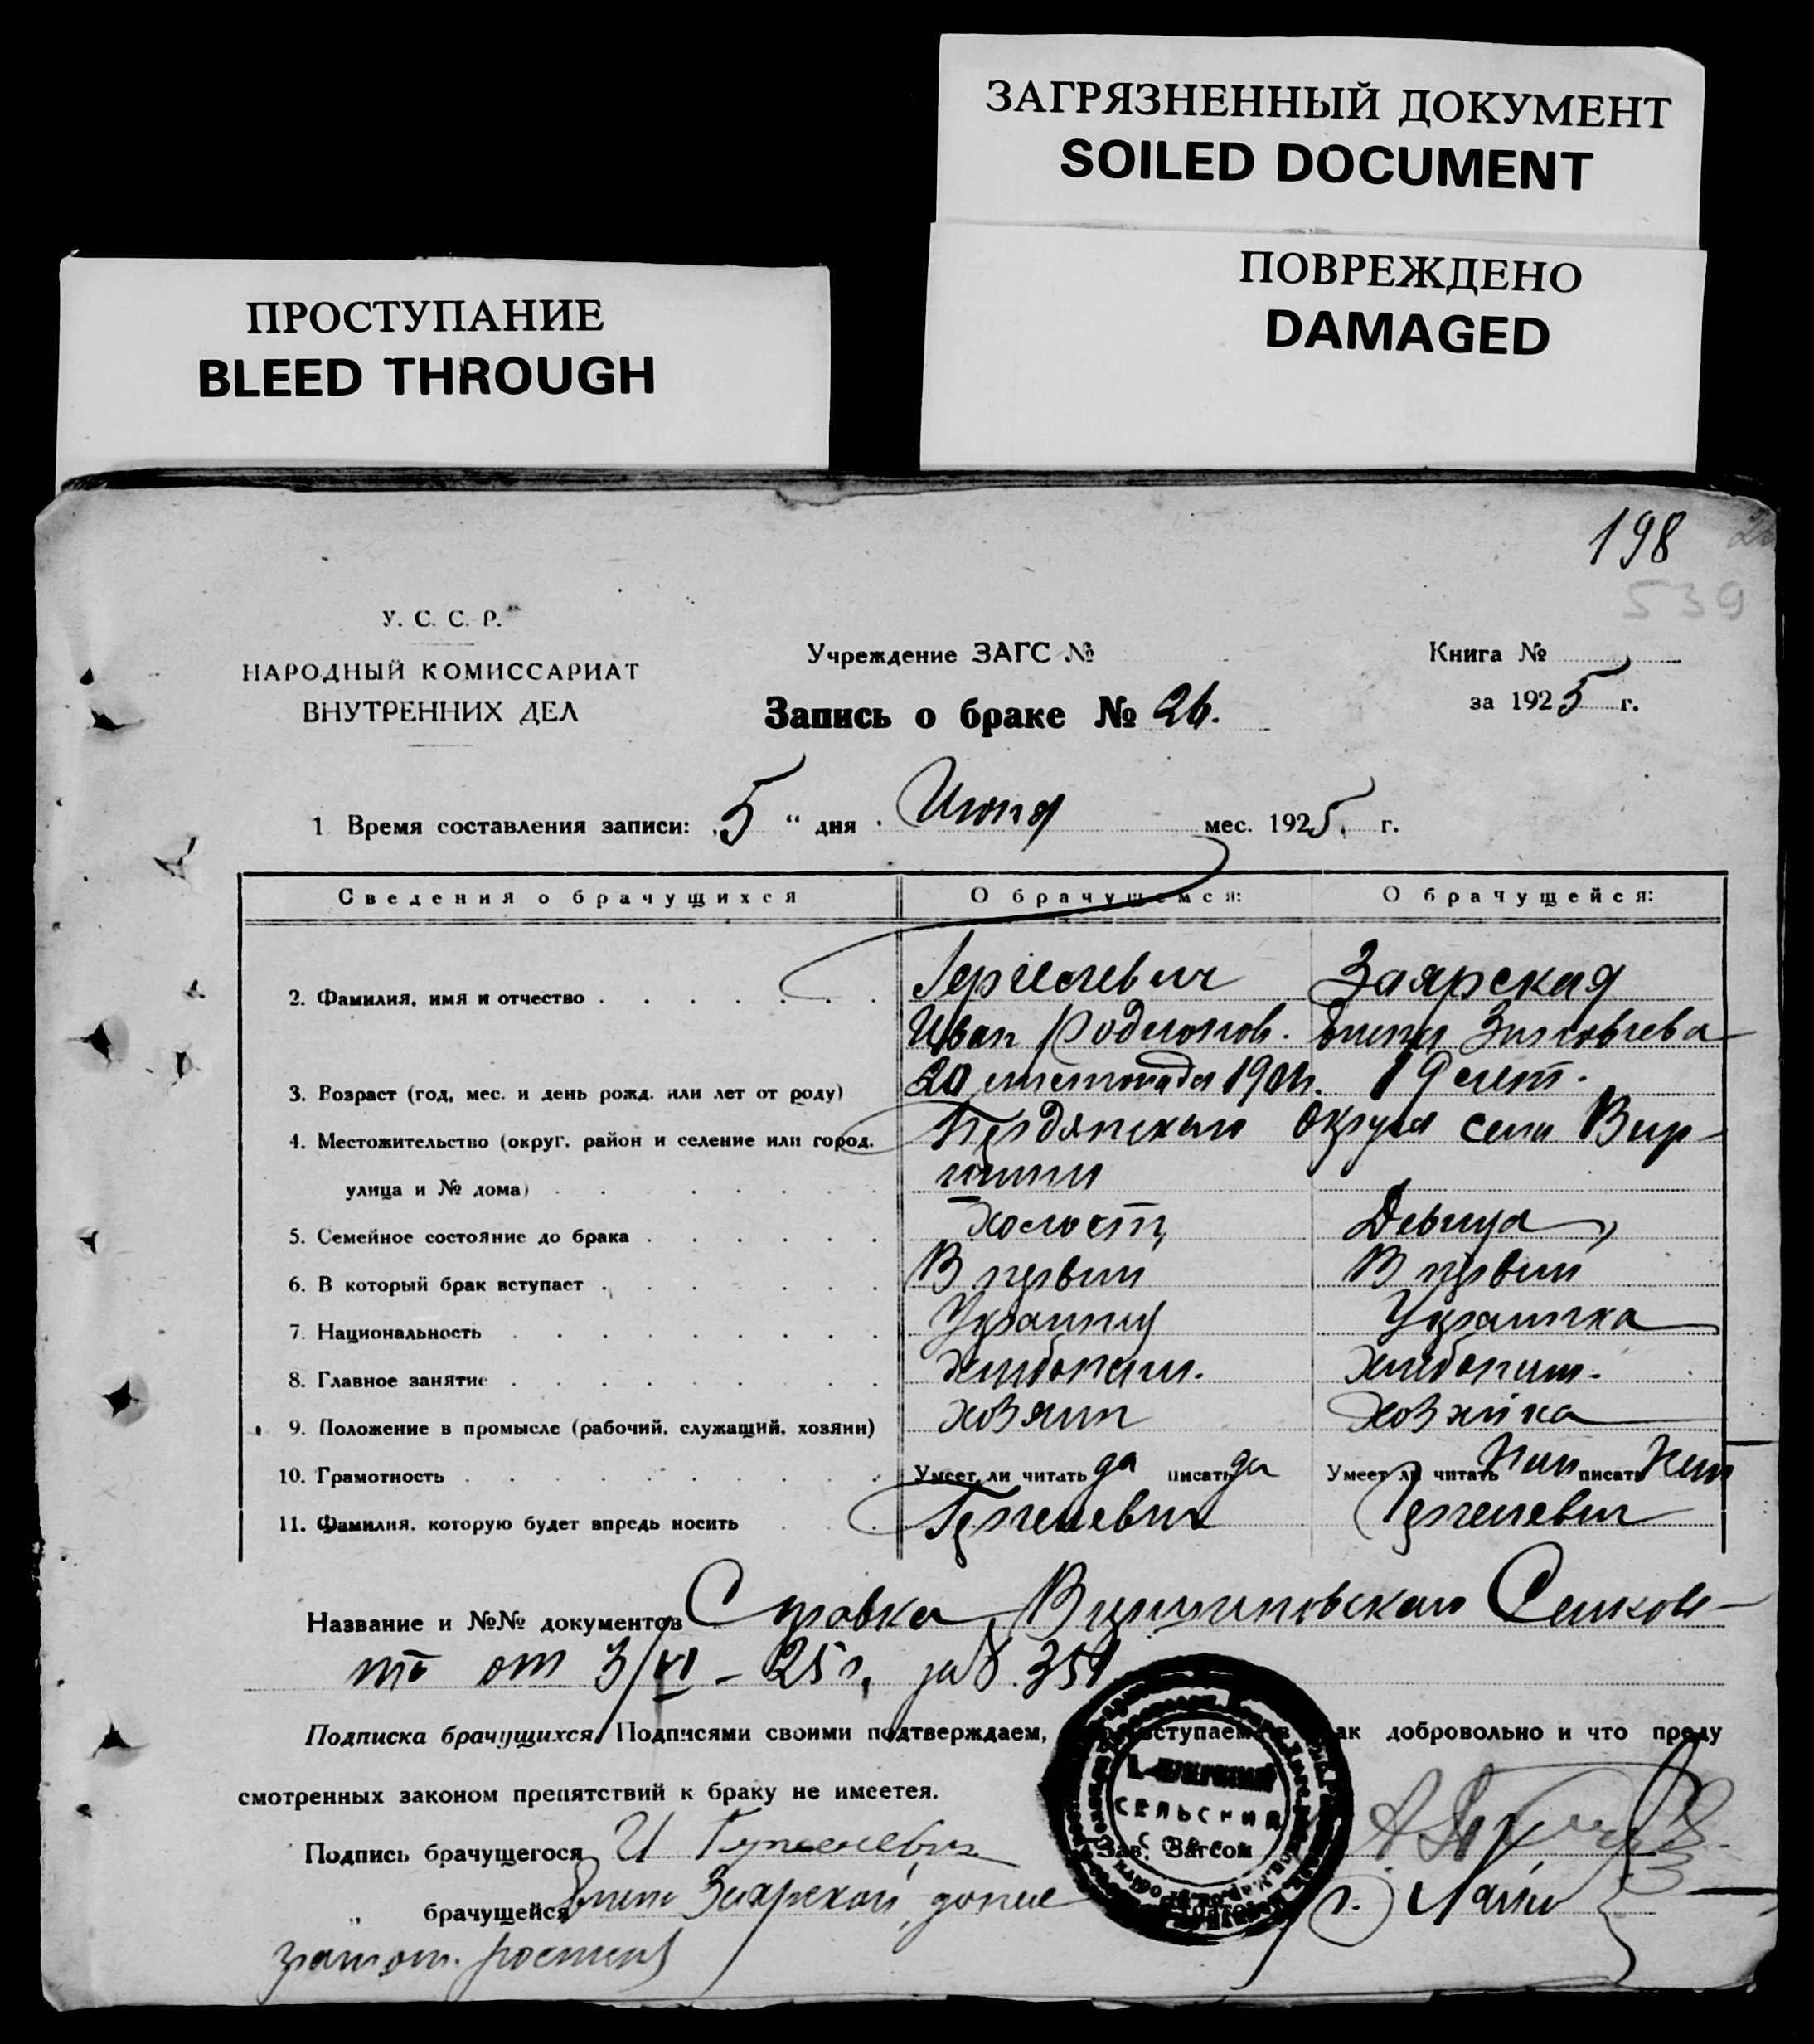 ЗАГРЯЗНЕННЫЙ ДОКУМЕНТ
SOILED DOCUMENT
ПОВРЕЖДЕНО
DAMAGED
ПРОСТУПАНИЕ
BLEED THROUGH
198
539
У. С. С. Р.
НАРОДНЫЙ КОМИССАРИАТ
ВНУТРЕННИХ ДЕЛ
Учреждение ЗАГС №
Книга №
за 1925 г.
Запись о браке № 26.
1 Время составления записи: „5 “ дня Июня мес. 1925 г.
Сведения о брачущихся О брачущемся: О брачущейся:
2. Фамилия, имя и отчество Гергелевич Заярская
Иван Родионов. Зиновьева
3. Возраст (год, мес. и день рожд. или лет от роду) 20 листопада 1904. 19 лет.
4. Местожительство (округ, район и селение или город, Бердянского Округа села Вир-
улица и № дома)
5. Семейное состояние до брака Холост, Девица,
6. В который брак вступает В первый В первый
7. Национальность Украинец Украинка
8. Главное занятие
9. Положение в промысле (рабочий, служащий, хозяин) хозяин хозяйка
10. Грамотность Умеет ли читать да писать да Умеет ли читать писать
11. Фамилия, которую будет впредь носить Гергелевич Гергелевич
Название и №№ документов Справка
от 3/VI – 25 г. за № 351
Подписка брачущихся. Подписями своими подтверждаем, вступаем добровольно и что преду
смотренных законом препятствий к браку не имеется.
Подпись брачущегося И Гергелевич
СЕЛЬСКИЙ
Зав. Загсом
„ брачущейся Заярской,